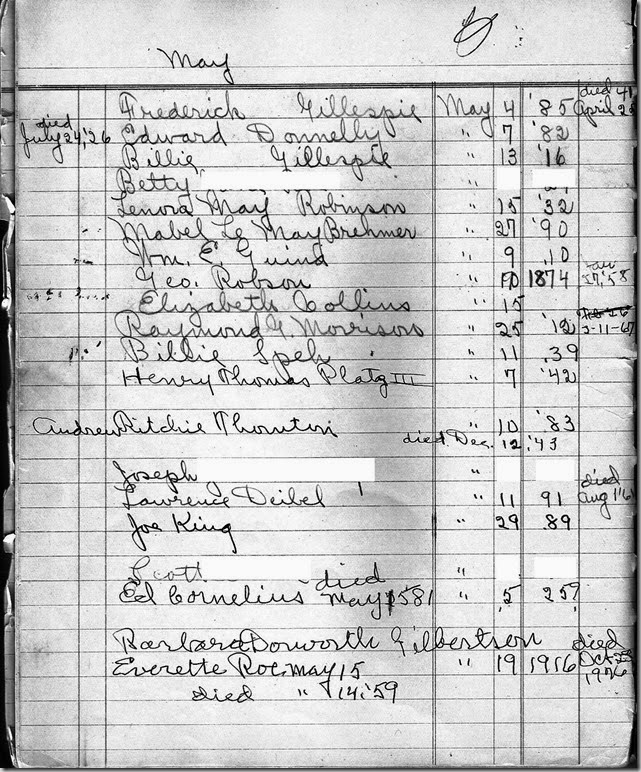 May
Frederick Gillespie May 4 '85 died April
died July 24, '26 Edward Donnelly " 7 '82
Billie Gillespie " 13 '16
Betty "
Lenora May Robinson " 15 '32
Mabel Le May Brehmer " 27 '90
Wm. E. Guind " 9 .10
Geo. Robson " 10 1874
Elizabeth Collins " 15
Raymond G. Morrison " 25 '12
Billie Speh " 11 .39
Henry Thomas Platz III " 7 '42
Andrew Ritchie Thornton " 10 '83
died Dec. 12, '43
Joseph "
Lawrence Deibel " 11 91 died Aug
Joe King " 29 .89
Scott "
Ed Cornelius died May 1581 " 5 25?
Barbara Dorworth Gilbertson died
Everette Roe. May 15 " 19 1916 Oct 1976
died " 14, '59